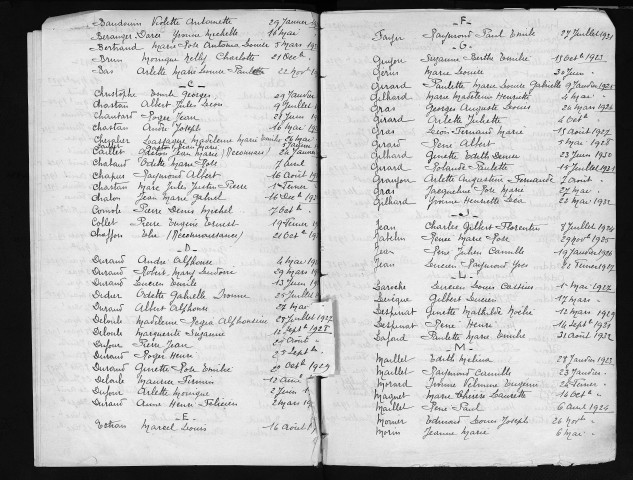 Baudouin Violette Antoinette 29 Janvier
Beranger Darci Yvonne Michelle 10 mai
Bertrand Marie Rose Antonia Louise 5 mars
Brun Monique Nelly Charlotte 21 Dec
Bas Arlette Marie Louise Paulette 22 Nov
- C -
Christophe Emile Georges 29 Janvier
Chastan Albert Jules Leon 9 Juillet
Chautard Roger Jean 28 Juin
Chastan André Joseph 10 Mai
Chevalier Madeleine Marie Emilie
Caillet Jean Marie (Reconnais)
Chabaud Odette Marie Rose 7 Avril
Chapus Raymond Albert 16 Août
Chastan Marie Jules Justin Pierre 1 Fevrier
Chalon Jean Marie Gabriel 16 Dec
Comole Pierre Denis Michel 7 Oct
Collet Pierre Eugène Ernest 19 Fevrier
Chaffois Elie (Reconnaissance) 21 Oct
- D -
Durand André Alphonse 4 Mai
Durand Robert Mary Ludovic 29 mars
Durand Lucien Emile 13 Juin
Didier Odette Gabrielle Yvonne 25 Juillet
Durand Albert Alphonse 27 Mai
Delorle Madeleine Regia Alphonsine 27 Juillet 1927
Delorle Marguerite Suzanne 12 Sept 1928
Dufour Pierre Jean 24 Août
Durand Roger Henri 25 Sept
Durand Ginette Rose Emilie 20 Oct 1929
Delorle Maurice Firmin 12 Août
Dufour Arlette Monique 2 Juin
Durand Anne Henri Felicien 2 Mars
- E -
Estran Marcel Louis 16 Août
- F -
Fayer Raymond Paul Emile 27 Juillet 1931
- G -
Guyon Suzanne Berthe Emilie 13 Oct 1923
Geriis Marie Louise 30 Juin
Girard Paulette Marie Louise Gabrielle 9 Janvier 1925
Gilhard Marie Madeleine Henriette 4 Mai
Gras Georges Auguste Louis 24 Mars 1926
Girard Arlette Juliette 4 Oct
Gras Leon Fernand Marie 15 Août 1927
Girard Pierre Albert 5 Mai 1928
Gilhard Ginette Edith Denise 23 Juin 1930
Girard Rolande Paulette 18 Juillet 1931
Grangeon Arlette Augustine Fernande 7 Août
Gras Jacqueline Rose Marie 27 Mai
Gilhard Yvonne Henriette Lea 22 Mai 1932
- J -
Jean Charles Gilbert Florentin 8 Juillet 1924
Renée Marie Rose 29 Nov 1925
Jean René Julien Camille 19 Janvier 1926
Jean Lucien Raymond Yves 22 Fevrier 1927
- L -
Laroche Lucien Louis Cassius 1 Mai 1927
Levigne Gilbert Lucien 17 Mars
Lespinat Ginette Mathilde Noëlie 12 Mars 1929
Lespinat René Henri 16 Sept 1931
Lafond Paulette Marie Emilie 31 Août 1932
- M -
Maillet Edith Melina 28 Janvier 1923
Maillet Raymond Camille 23 Janvier
Morard Yvonne Eugenie 24 Fevrier
Magnet Marie Therese Laurette 10 Oct
Maillet René Paul 6 Avril 1924
Morier Edmond Louis Joseph 26 Nov
Morin Jeanne Marie 6 Mai